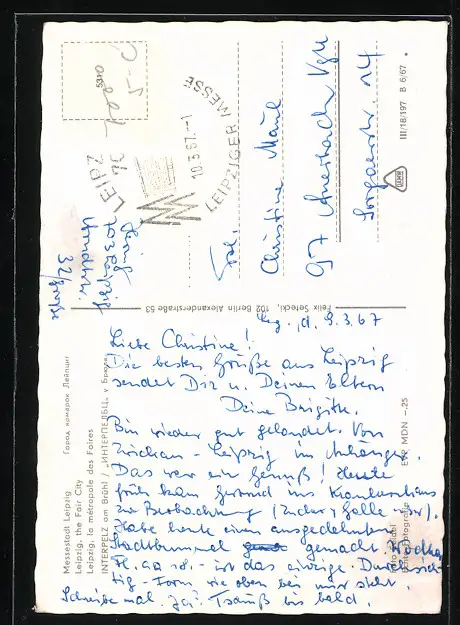 Messestadt Leipzig Город ярмарок Лейпциг
Leipzig, the Fair City
Leipzig, la métropole des Foires
INTERPELZ am Brühl / „ИНТЕРПЕЛЬЦ“ у Брюля
Lpzg., d. 9.3.67
Liebe Christine!
Die besten Grüße aus Leipzig
sendet Dir u. Deinen Eltern
Deine Brigitte.
Bin wieder gut gelandet. Von
Zwickau - Leipzig im Anhänger.
Das war ein Genuß! Heute
früh kam Gertrud ins Krankenhaus
zur Beobachtung (Zucker, Galle
Habe heute einen ausgedehnten
Stadtbummel gemacht. Wodka
ist das einzige. Durchsich-
tig - Form wie oben bei mir steht.
Schreibe mal. Ja? Tschüß bis bald.
EVP MDN -.25
Felix Setecki, 102 Berlin Alexanderstraße 53
5340
LEIPZIG
10.3.67.-1
LEIPZIGER MESSE
Frl.
Christine Maul
97 Auerbach Vgtl
Sorgaerstr. 14
III/18/197 B 6/67